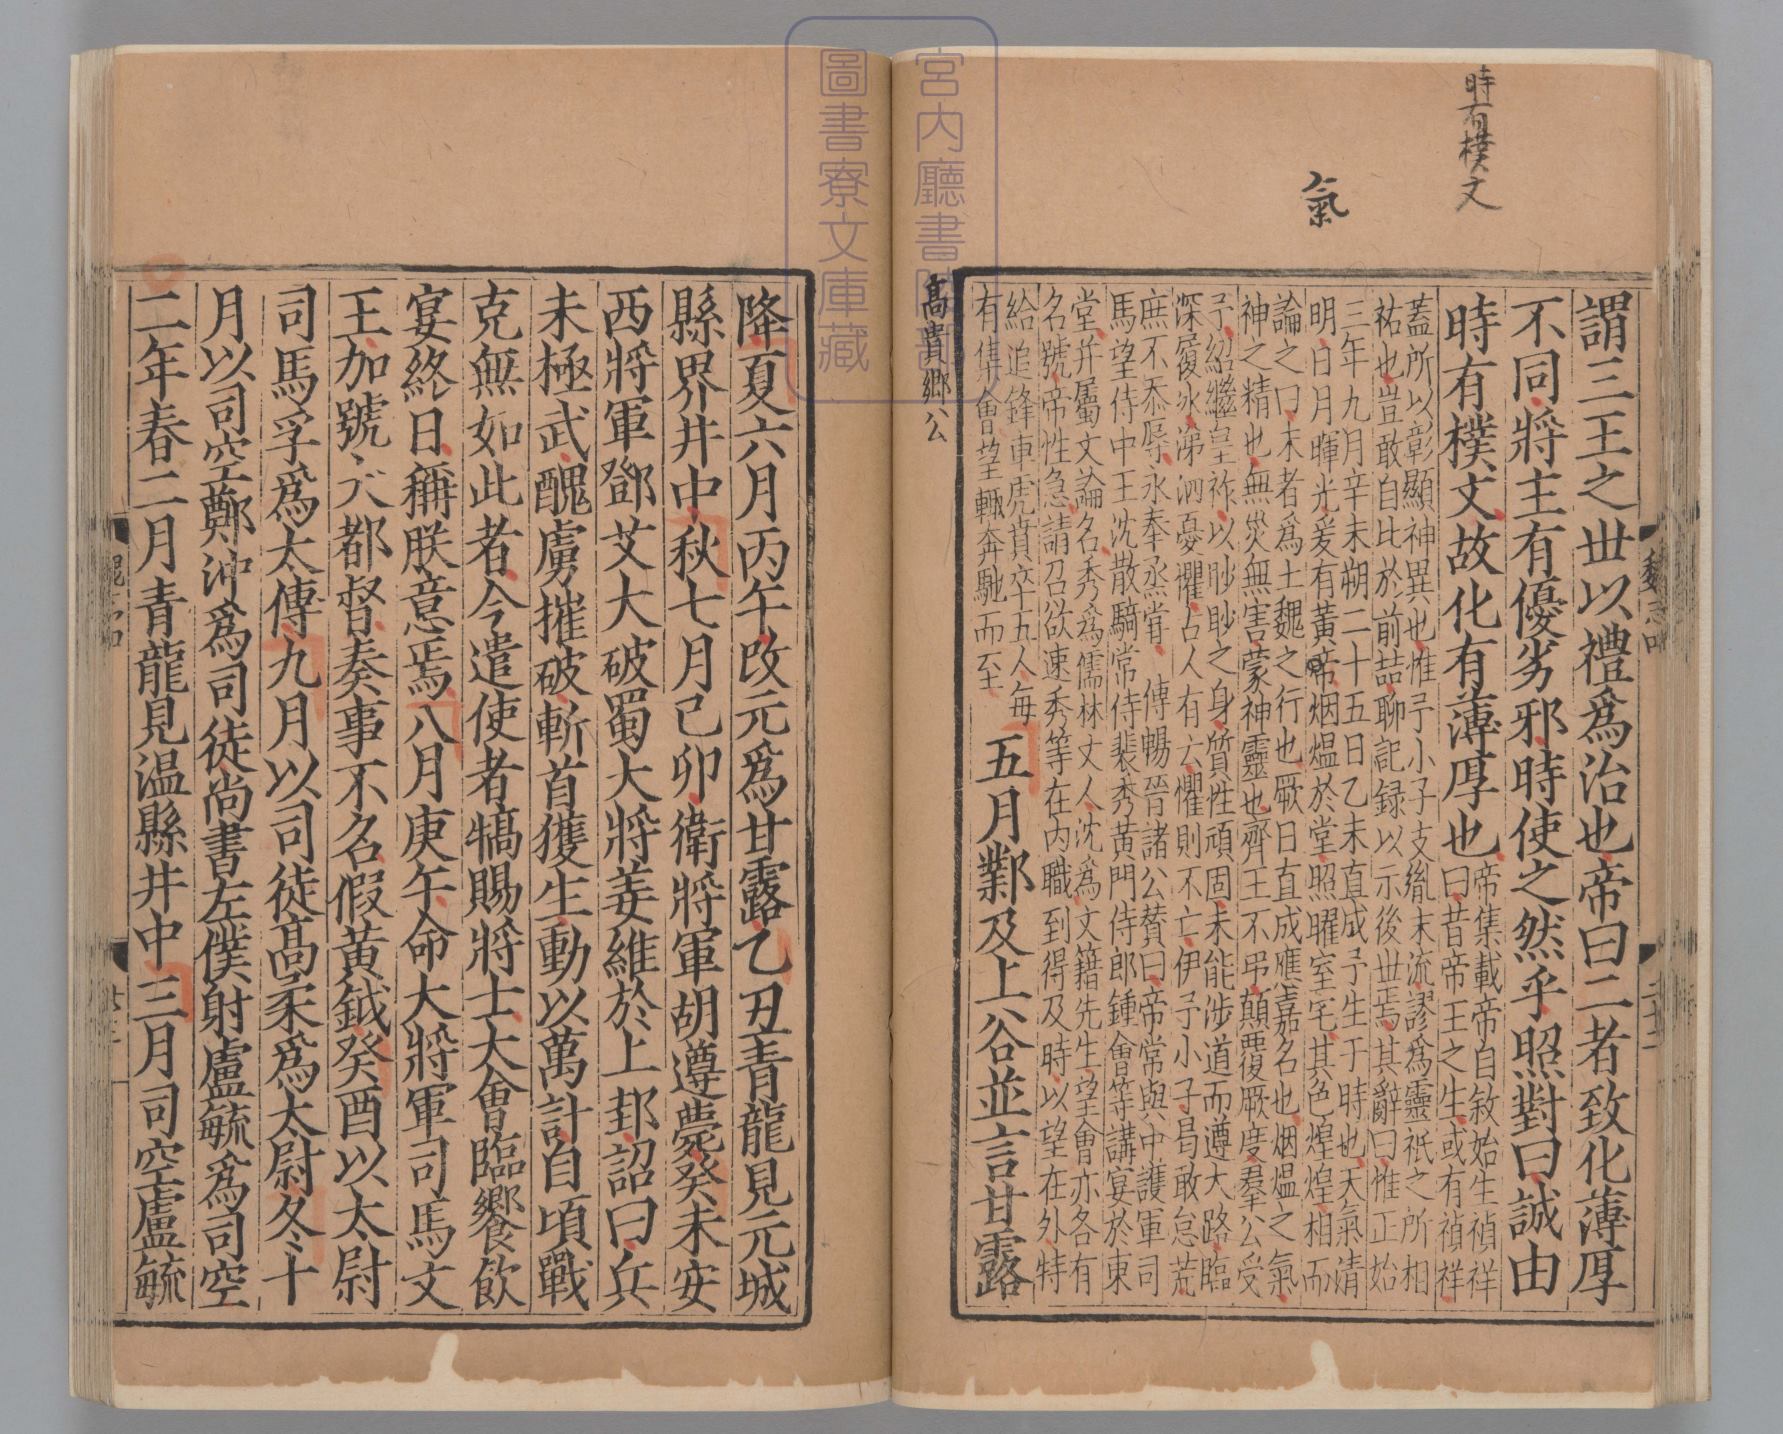 時有樸文
氣
謂三王之世以禮爲治也帝曰二者致化薄厚
不同將主有優劣邪時使之然乎照對曰誠由
時有樸文故化有薄厚也帝集載帝自敘始生禎祥
曰昔帝王之生或有禎祥
蓋所以彰顯神異也惟予小子支胤末流謬爲靈祇之所相
祐也豈敢自比於前喆聊記録以示後世焉其辭曰惟正始
三年九月辛未朔二十五日乙未直成予生于時也天氣清
明日月暉光爰有黃帝烟熅於堂照曜室宅其色煌煌相而
論之曰未者爲土魏之行也厥日直成應嘉名也烟熅之氣
神之精也無災無害蒙神靈也齊王不弔顛覆厥度羣公受
予紹繼皇祚以眇眇之身質性頑固未能涉道而遵大路臨
深履冰涕泗憂懼古人有云懼則不亡伊予小子曷敢怠荒
庶不忝辱永奉烝甞　傅暢晉諸公賛曰帝常與中護軍司
馬望侍中王沈散騎常侍裴秀黄門侍郎鍾會等講宴於東
堂并屬文論名秀爲儒林丈人沈爲文籍先生望會亦各有
名號帝性急請召欲速秀等在内職到得及時以望在外特
給追鋒車虎賁卒五人每
有集會望輒奔馳而至
五月鄴及上谷並言甘露
高貴鄉公
宮内廳書陵部
圖書寮文庫藏
降夏六月丙午改元爲甘露乙丑青龍見元城
縣界井中秋七月己卯衛將軍胡遵薨癸未安
西將軍鄧艾大破蜀大將姜維於上邽詔曰兵
未極武醜虜摧破斬首獲生動以萬計自頃戰
克無如此者今遣使者犒賜將士大會臨饗飲
宴終日稱朕意焉八月庚午命大將軍司馬文
王加號大都督奏事不名假黄鉞癸酉以太尉
司馬孚爲太傅九月以司徒高柔爲太尉冬十
月以司空鄭沖爲司徒尚書左僕射盧毓爲司空
二年春二月青龍見温縣井中三月司空盧毓